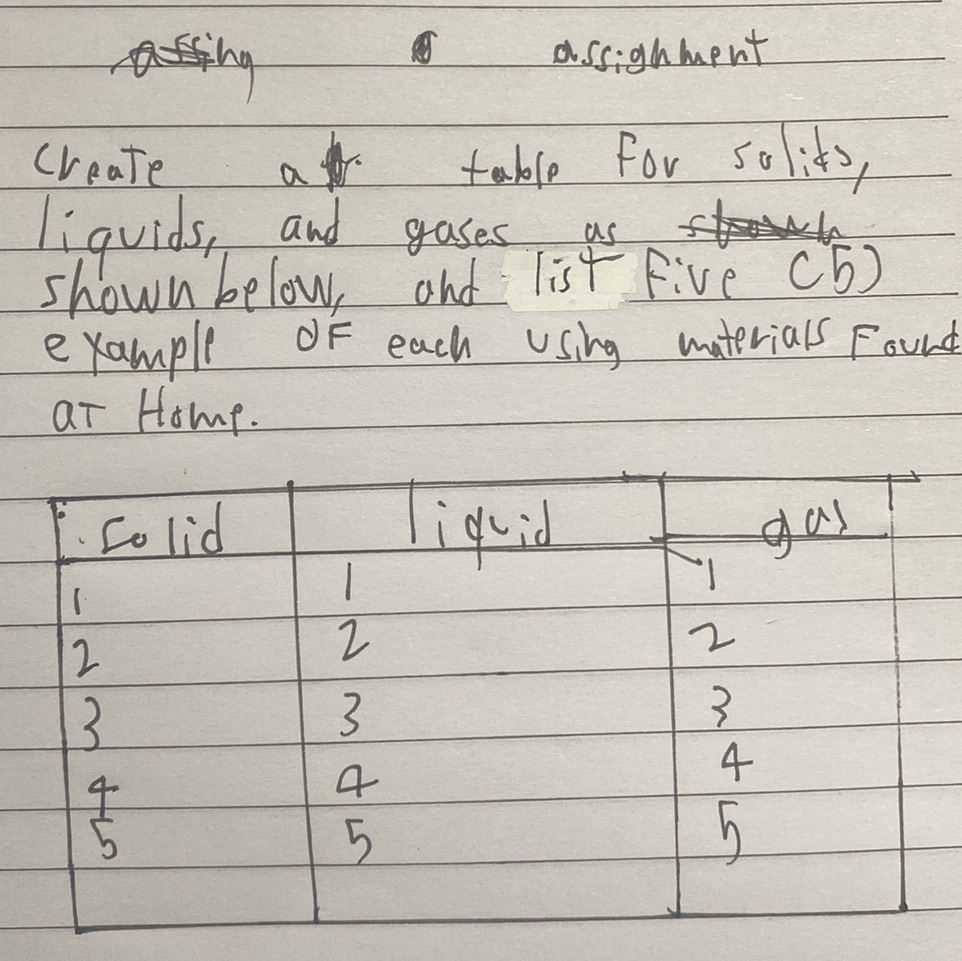 assignment
Create a table For solids,
liquids, and gases as
shown below, and list Five (5)
example OF each using materials Found
at Home.
Solid liquid gas
1 1 1
2 2 2
3 3 3
4 4 4
5 5 5